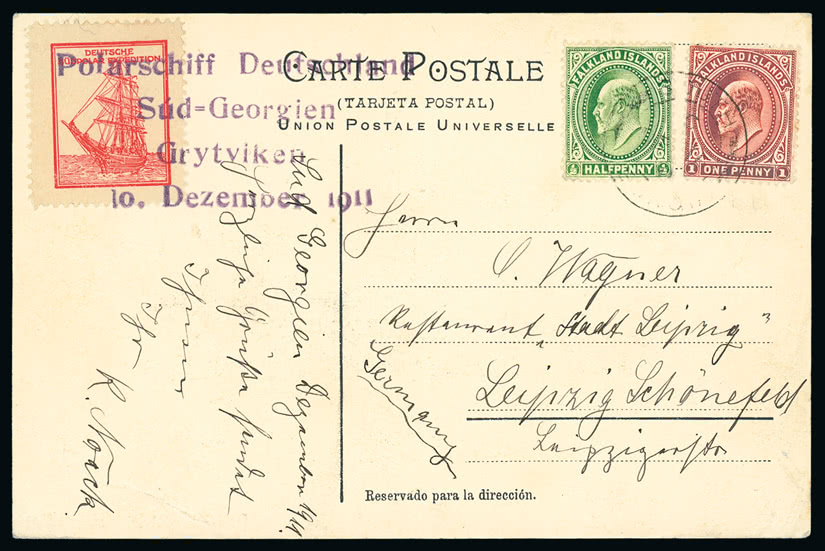 DEUTSCHE
SÜDPOLAR EXPEDITION
Polarschiff Deutschland
Süd=Georgien
Grytviken
10. Dezember 1911
CARTE POSTALE
(TARJETA POSTAL)
UNION POSTALE UNIVERSELLE
FALKLAND ISLANDS
½ HALFPENNY ½
FALKLAND ISLANDS
1 ONE PENNY 1
Süd Georgien Dezember 1911.
herzliche Grüße sendet
Ihnen
Ihr
K. Noack.
Herrn
O. Wagner
Restaurant „Stadt Leipzig"
Leipzig Schönefeld
Leipzigerstr
Germany
Reservado para la dirección.